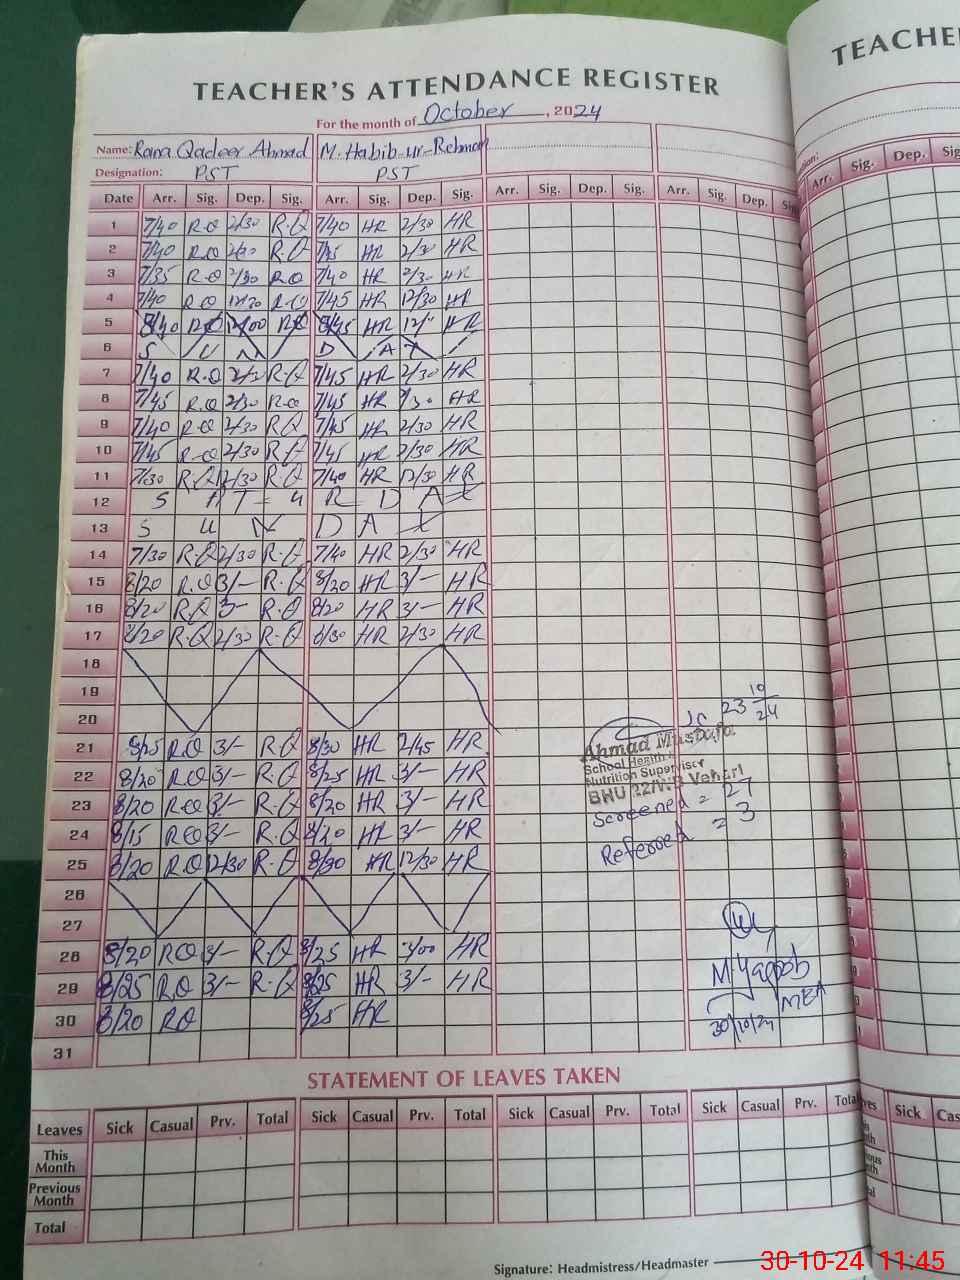 TEACHER'S ATTENDANCE REGISTER
For the month of October, 2024
Name: Rana Qadeer Ahmad M. Habib-ur-Rehman
Designation: PST PST
Date Arr. Sig. Dep. Sig. Arr. Sig. Dep. Sig. Arr. Sig. Dep. Sig. Arr. Sig. Dep.
1 7/40 R.Q 2/30 R.Q 7/40 HR 2/30 HR
2 7/40 R.Q R.Q HR 2/30 HR
3 7/35 R.Q 2/30 RQ 7/40 HR 2/30 HR
4 7/40 R.Q 12/30 R.Q 7/45 HR 12/30 HR
5 8/40 RQ 12/00 RQ 8/45 HR HR
6 S U N D A Y
7 7/40 R.Q 2/30 R.Q 7/45 HR 2/30 HR
8 7/45 R.Q 2/30 R.Q 7/45 HR 2/30 HR
9 7/40 R.Q 2/30 RQ 7/45 HR 2/30 HR
10 7/45 R.Q 2/30 R.Q 7/45 HR 2/30 HR
11 7/30 R.Q 12/30 R.Q 7/40 HR 12/30 HR
12 S A T U R D A Y
13 S U N D A Y
14 7/30 R.Q 2/30 R.Q 7/40 HR 2/30 HR
15 8/20 R.Q 3/- R.Q 8/20 HR 3/- HR
16 8/20 R.Q 3- R.Q 8/20 HR 3/- HR
17 8/20 R.Q 2/30 R.Q 8/30 HR 2/30 HR
18
19
20
21 8/25 RQ 3/- R.Q 8/30 HR 2/45 HR
22 8/20 RQ 3/- R.Q 8/25 HR 3/- HR
23 8/20 RQ 3/- R.Q 8/20 HR 3/- HR
24 8/15 RQ 3/- R.Q 8/20 HR 3/- HR
25 8/20 RQ 12/30 R.Q 8/20 HR 12/30 HR
26
27
28 8/20 RQ 3/- R.Q 8/25 HR 3/00 HR
29 8/25 RQ 3/- R.Q 8/25 HR 3/- HR
30 8/20 RQ 8/25 HR
31
23 10/24
Ahmad Mustafa
School Health
Nutrition Supervisor
BHU 22/WB Vehari
Screened = 27
Referred = 3
M. Yaqoob
MEA
30/10/24
STATEMENT OF LEAVES TAKEN
Leaves Sick Casual Prv. Total Sick Casual Prv. Total Sick Casual Prv. Total Sick Casual Prv. Total
This Month
Previous Month
Total
Signature: Headmistress/Headmaster
TEACHE
Arr. Sig. Dep. Sig
Sick Cas
30-10-24 11:45